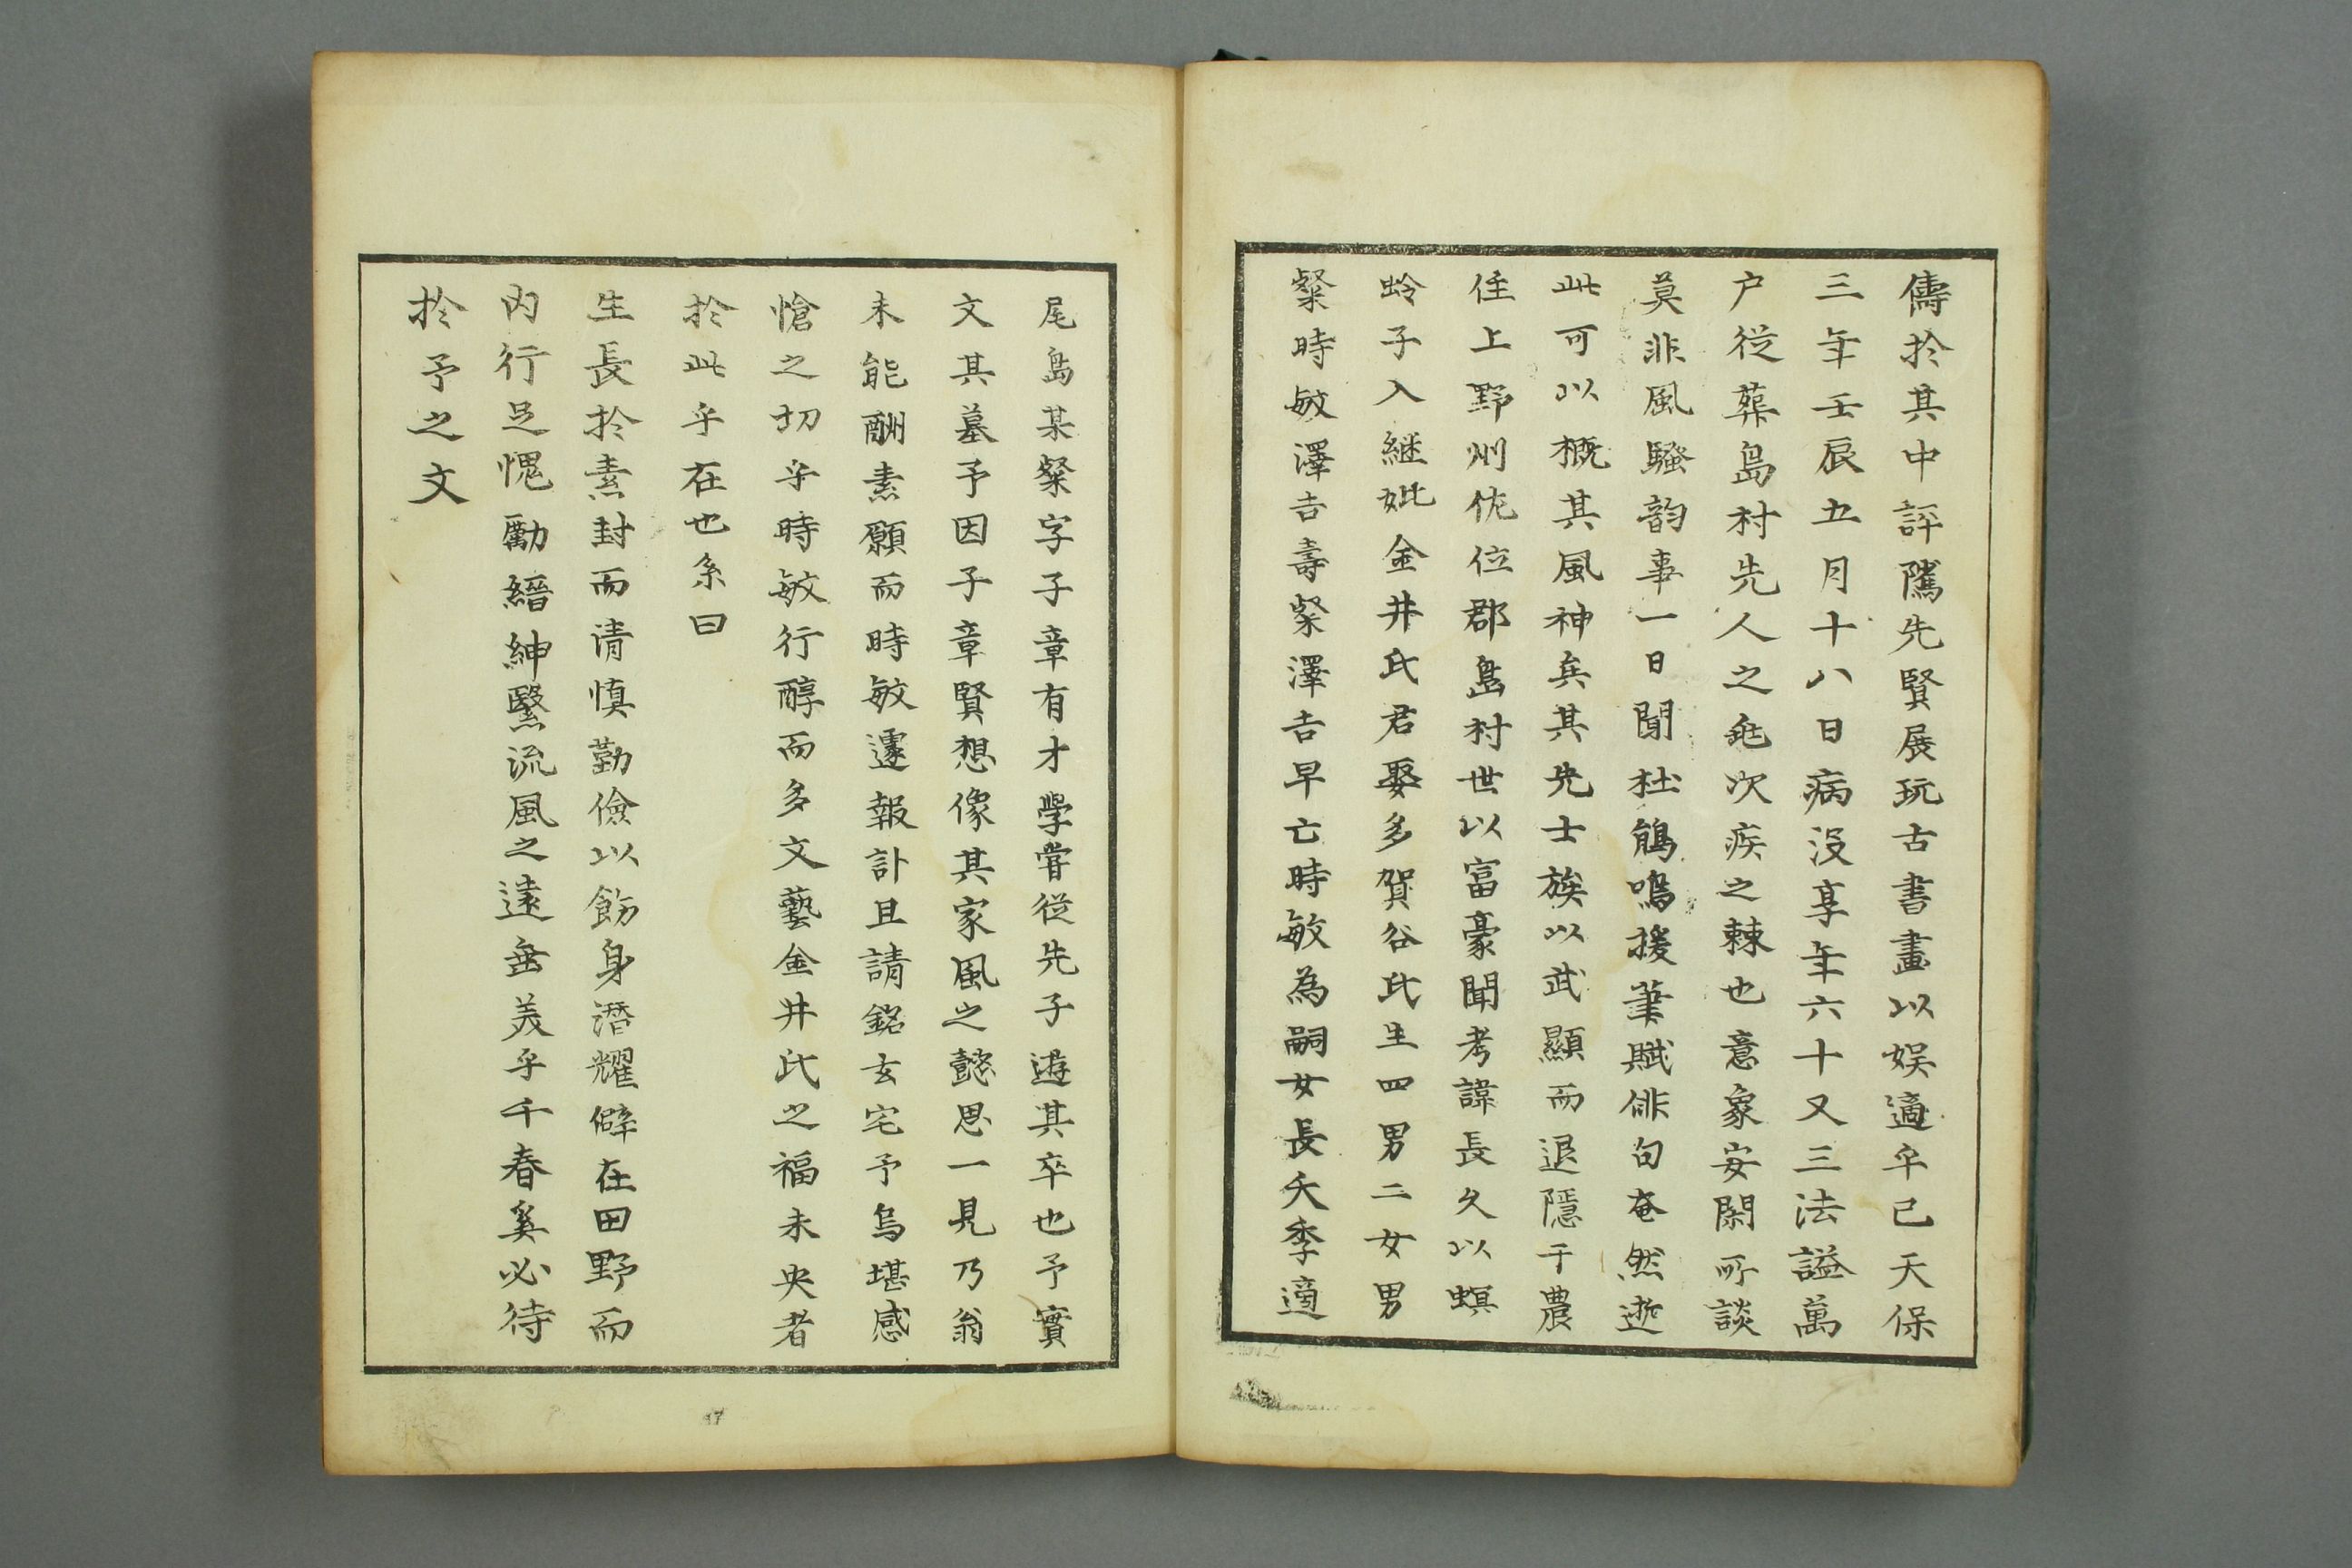 儔於其中評隲先賢展玩古書畫以娯適乎已天保
三年壬辰五月十八日病没享年六十又三法謚萬
户従葬島村先人之兆次疾之棘也意象安閑所談
莫非風騒韵事一日聞杜鵑鳴援筆賦俳句奄然逝
此可以概其風神矣其先士族以武顯而退隱于農
住上野州佐位郡島村世以富豪聞考諱長久以螟
蛉子入継妣金井氏君娶多賀谷氏生四男二女男
粲時敏澤吉壽粲澤吉早亡時敏為嗣女長夭季適
尾島某粲字子章有才學甞従先子遊其卒也予實
文其墓予因子章賢想像其家風之懿思一見乃翁
未能酬素願而時敏遽報訃且請銘玄宅予烏堪感
愴之切乎時敏行醇而多文藝金井氏之福未央者
於此乎在也系曰
生長於素封而清慎勤儉以飭身潛耀僻在田野而
內行足愧勵縉紳繄流風之遠垂美乎千春奚必待
於予之文